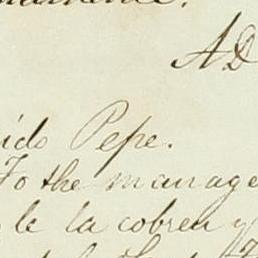 AD
ido Pepe.
To the manage
le la cobren y